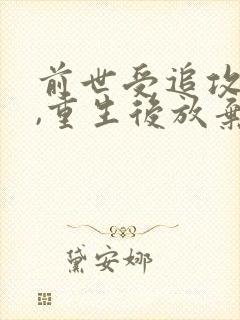 前世受追攻
,重生後放棄
黛安娜